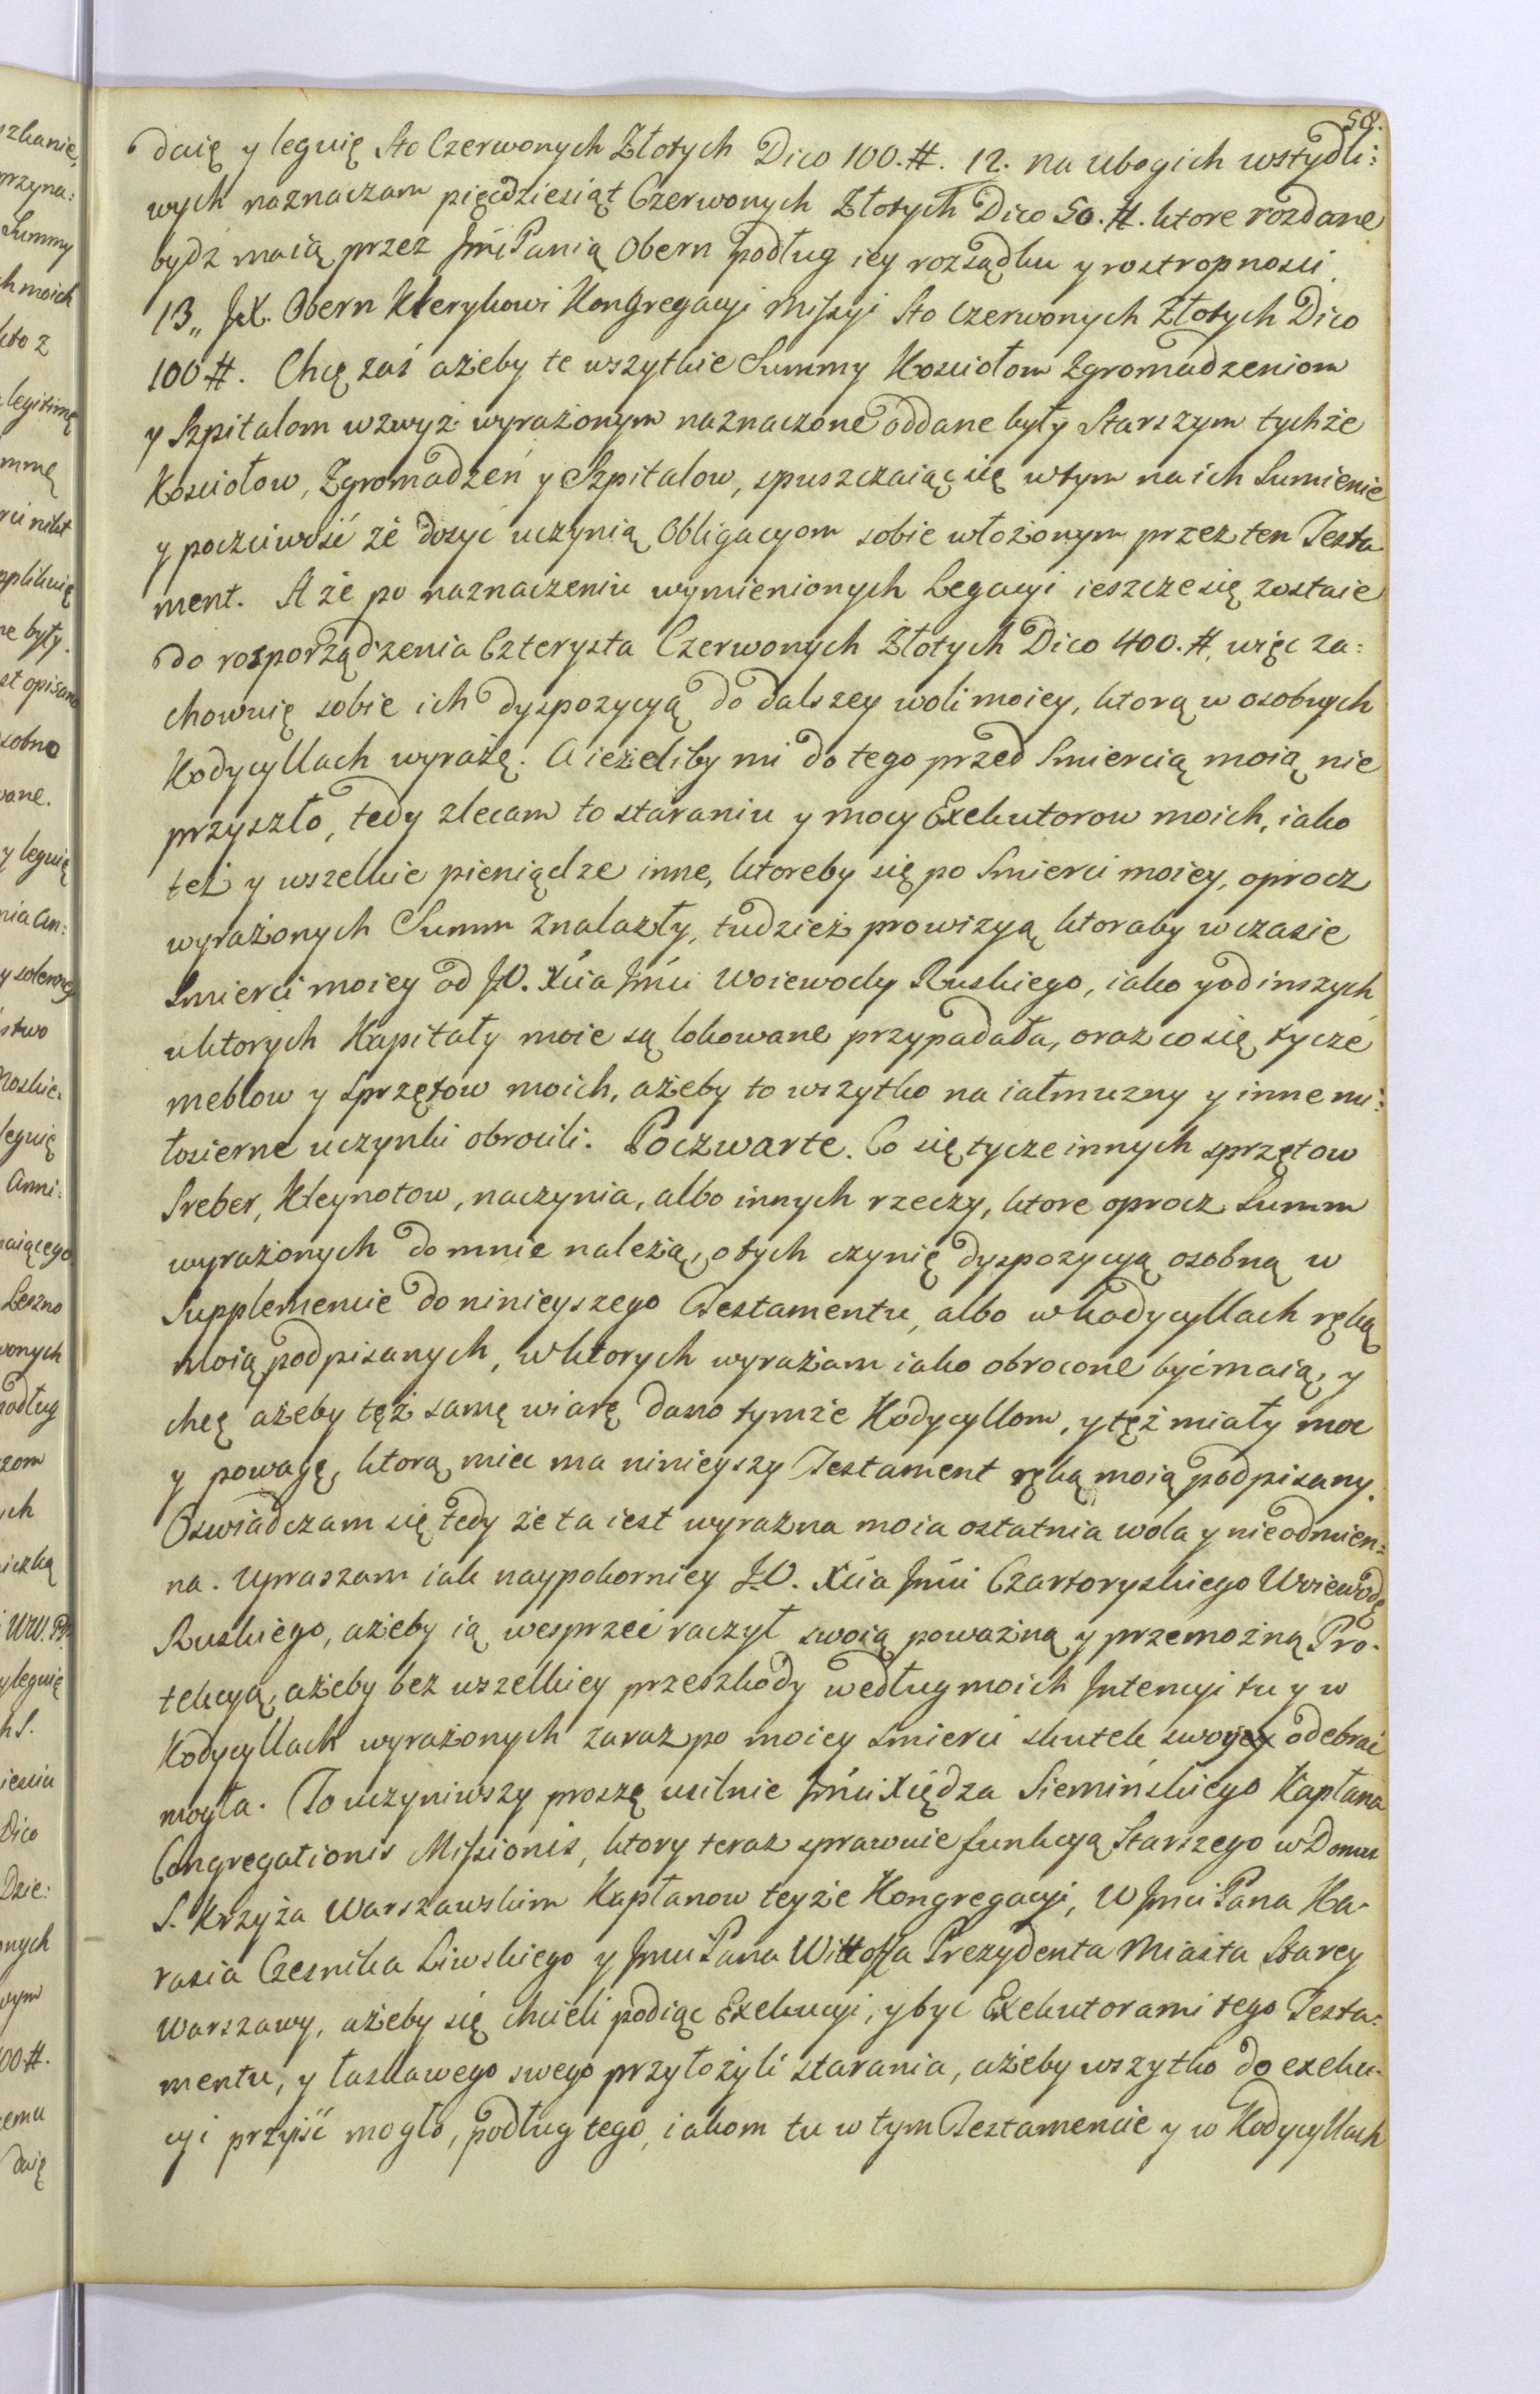 58.
daię y leguię Sto Czerwonych Złotych Dico 100.#. 12. na ubogich wstydli:
wych naznaczam pięcdziesiąt Czerwonych Złotych Dico 50.#. ktore rozdane
bydź maią przez Jmć Panią Obern podług iey rozsądku y rostropnosci.
13,, JX. Obern Klerykowi Kongregacyi Missyi Sto Czerwonych Złotych Dico
100#. Chcę zaś ażeby te wszytkie Summy Kosciołom Zgromadzeniom
y Szpitalom wzwyż wyrażonym naznaczone oddane były Starszym tychże
Kosciołow, Zgromadzeń y Szpitalow, spuszczaiąc się wtym na ich Sumienie
y poczciwość że dosyć uczynią Obligacyom sobie włożonym przez ten Testa
ment. A że po naznaczeniu wymienionych Legacyi ieszcze się zostaie
do rosporządzenia Czterysta Czerwonych Złotych Dico 400.#. więc za:
chowuię sobie ich dyspozycyą do dalszey woli moiey, ktorą w osobnych
Kodycyllach wyrażę. A ieżeliby mi do tego przed Smiercią moią nie
przyszło, tedy zlecam to staraniu y mocy Exekutorow moich, iako
też y wszelkie pieniądze inne, ktoreby się po Smierci moiey, oprocz
wyrażonych Summ znalazły, tudzież prowizyą ktoraby w czasie
Smierci moiey od JO. Xcia Jmci Woiewody Ruskiego, iako y od inszych
u ktorych Kapitały moie są lokowane przypadała, oraz co się tycze
meblow y Sprzętow moich, ażeby to wszytko na iałmużny y inne mi:
łosierne uczynki obrocili. Poczwarte. Co się tycze innych sprzętow
Sreber, Kleynotow, naczynia, albo innych rzeczy, ktore oprocz Summ
wyrażonych do mnie należą, o tych czynię dyspozycyą osobną w
Supplemencie do ninieyszego Testamentu, albo w kodycyllach ręką
moią podpisanych, w ktorych wyrażam iako obrocone być maią, y
chcę ażeby też samę wiarę dano tymże Kodycyllom, y też miały moc
y powagę, ktorą miec ma ninieyszy Testament ręką moią podpisany.
Oswiadczam się tedy że ta iest wyrazna moia ostatnia wola y nieodmien:
na. Upraszam iak naypokorniey JO. Xcia Jmci Czartoryskiego Woiewodę
Ruskiego, ażeby ią wesprzeć raczył swoią poważną y przemożną Pro-
tekcyą, ażeby bez wszelkiey przeszkody według moich Intencyi tu y w
Kodycyllach wyrażonych zaraz po moiey smierci skutek swoy odebrać
mogła. To uczyniwszy proszę usilnie Jmci Xiędza Siemińskiego Kapłana
Congregationis Missionis, ktory teraz sprawuie funkcyą Starszego w Domu
S. Krzyża Warszawskim Kapłanow teyże Kongregacyi, W Jmci Pana Ha-
rasia Czesnika Liwskiego y Jmci Pana Wittoffa Prezydenta Miasta Starey
Warszawy, ażeby się chcieli podiąc Exekucyi, y byc Exekutorami tego Testa:
mentu, y łaskawego swego przyłożyli starania, ażeby wszytko do exeku-
cyi przyiść mogło, podług tego, iakom tu w tym Testamencie y w Kodycyllach